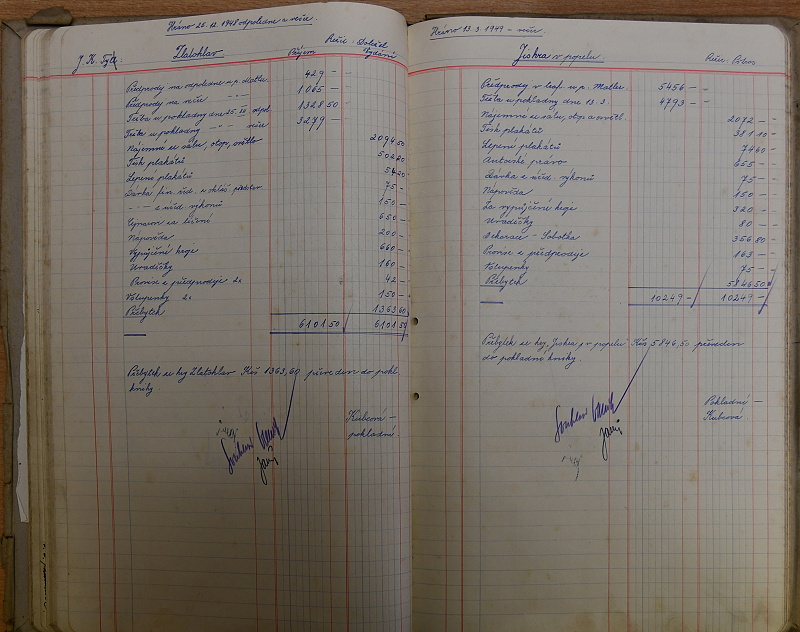 Hráno 25. 12. 1948 odpoledne a večer.
J. K. Tyl: Zlatohlav Příjem Vydání
Předprody na odpoledne u p. Matle. 429 -
Předprody na večer 1065 -
Tržba u pokladny dne 25. XII odpol. 1328 50
Tržba u pokladny - " - večer 3279 -
Nájemné ze sálu, otop, světlo 2094 50
Tisk plakátů 502 20
Lepení plakátů
75 -
- " - z úřed. výkonů 150 -
650 -
Nápověda 200 -
Vypůjčené hry 660 -
Uvaděčky 160 -
Provise z předprodeje 2x 42 -
Vstupenky 2x 150 -
Přebytek 1363 60
6101 50 6101 50
Přebytek ze hry Zlatohlav Kčs 1363,60 převeden do pokl.
knihy.
Kubcová -
pokladní.
Hráno 13. 3. 1949 - večer.
Jiskra v popelu
Předprody u p. Matle. 5456 - -
Tržba u pokladny dne 13. 3. 4793 - -
Nájemné ze sálu, otop a světl. 2072 - -
Tisk plakátů 381 10
Lepení plakátů 74 60
Autorské právo 655 -
Dávka z úřed. výkonů 75 -
Nápověda 150 -
Za vypůjčené hry 320 -
Uvaděčky 80 -
Dekorace - Sobotka 356 80
Provise z předprodeje 163 -
Vstupenky 75 -
Přebytek 5846 50
10249 - 10249 -
Přebytek ze hry „Jiskra v popelu“ Kčs 5846,50 převeden
do pokladní knihy.
Pokladní -
Kubcová.